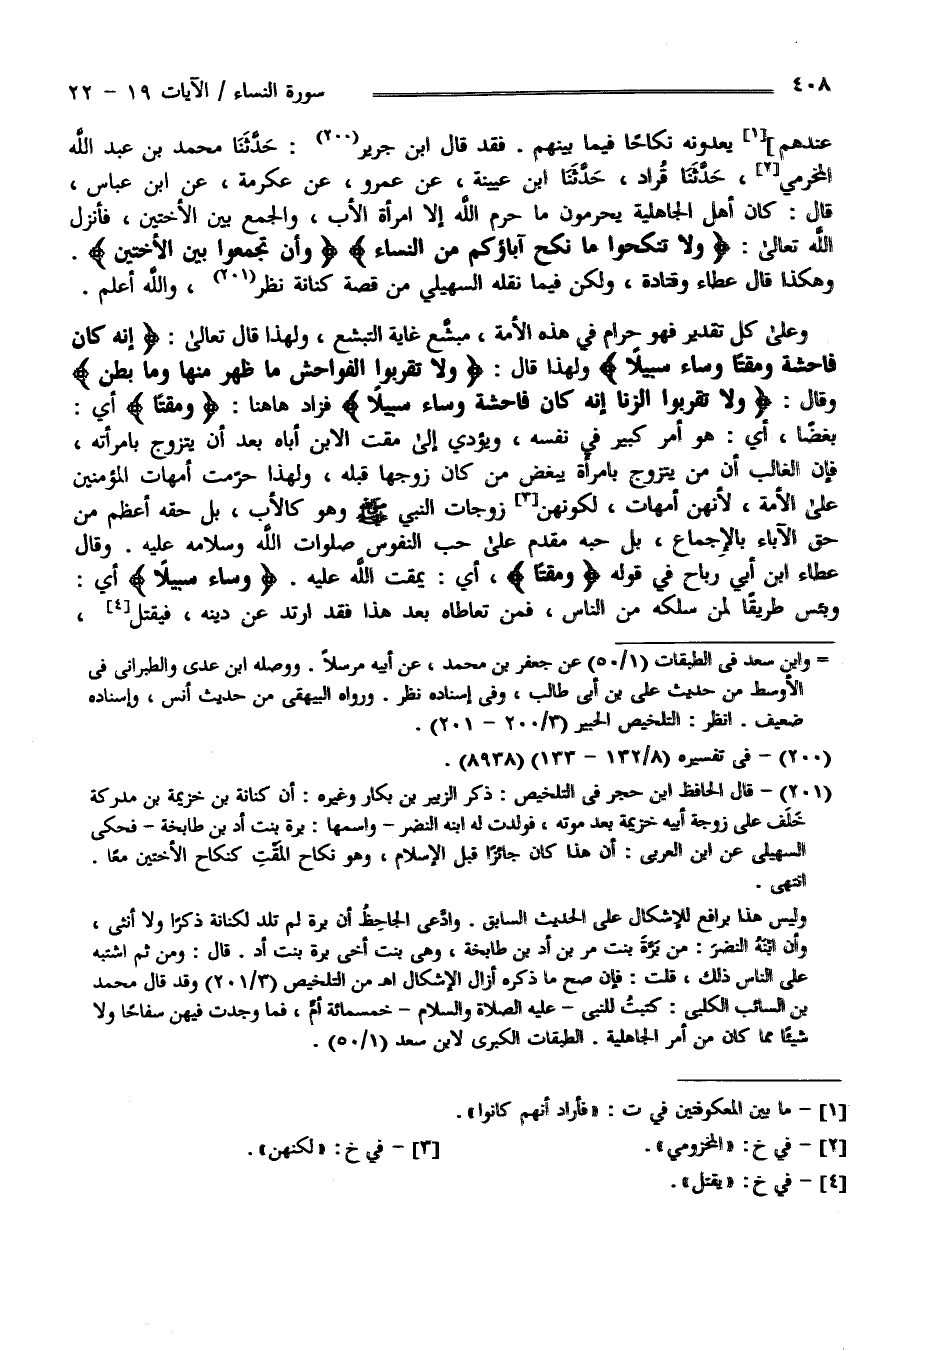 ٤٠٨ سورة النساء / الآيات ١٩ - ٢٢
عندهم][١] يعدونه نكاحًا فيما بينهم . فقد قال ابن جرير(٢٠٠) : حَدَّثَنَا محمد بن عبد اللَّه
المخرمي[٢] ، حَدَّثَنَا قُراد ، حَدَّثَنَا ابن عيينة ، عن عمرو ، عن عكرمة ، عن ابن عباس ،
قال : كان أهل الجاهلية يحرمون ما حرم اللَّه إلا امرأة الأب ، والجمع بين الأختين ، فأنزل
اللَّه تعالىٰ : ﴿ ولا تنكحوا ما نكح آباؤكم من النساء ﴾ ﴿ وأن تجمعوا بين الأختين ﴾ .
وهكذا قال عطاء وقتادة ، ولكن فيما نقله السهيلي من قصة كنانة نظر(٢٠١) ، واللَّه أعلم .
وعلىٰ كل تقدير فهو حرام في هذه الأمة ، مبشَّع غاية التبشع ، ولهذا قال تعالىٰ : ﴿ إنه كان
فاحشة ومقتًا وساء سبيلًا ﴾ ولهذا قال : ﴿ ولا تقربوا الفواحش ما ظهر منها وما بطن ﴾
وقال : ﴿ ولا تقربوا الزنا إنه كان فاحشة وساء سبيلًا ﴾ فزاد هاهنا : ﴿ ومقتًا ﴾ أي :
بغضًا ، أي : هو أمر كبير في نفسه ، ويؤدي إلىٰ مقت الابن أباه بعد أن يتزوج بامرأته ،
فإن الغالب أن من يتزوج بامرأة يبغض من كان زوجها قبله ، ولهذا حرّمت أمهات المؤمنين
علىٰ الأمة ، لأنهن أمهات ، لكونهن[٣] زوجات النبي ﷺ وهو كالأب ، بل حقه أعظم من
حق الآباء بالإجماع ، بل حبه مقدم علىٰ حب النفوس صلوات اللَّه وسلامه عليه . وقال
عطاء ابن أبي رباح في قوله ﴿ ومقتًا ﴾ ، أي : يمقت اللَّه عليه . ﴿ وساء سبيلًا ﴾ أي :
وبئس طريقًا لمن سلكه من الناس ، فمن تعاطاه بعد هذا فقد ارتد عن دينه ، فيقتل[٤] ،
= وابن سعد فى الطبقات (٥٠/١) عن جعفر بن محمد ، عن أبيه مرسلاً . ووصله ابن عدى والطبرانى فى
الأوسط من حديث على بن أبى طالب ، وفى إسناده نظر . ورواه البيهقى من حديث أنس ، وإسناده
ضعيف . انظر : التلخيص الحبير (٢٠٠/٣ - ٢٠١) .
(٢٠٠) - فى تفسيره (١٣٢/٨ - ١٣٣) (٨٩٣٨) .
(٢٠١) - قال الحافظ ابن حجر فى التلخيص : ذكر الزبير بن بكار وغيره : أن كنانة بن خزيمة بن مدركة
خَلَف على زوجة أبيه خزيمة بعد موته ، فولدت له ابنه النضر - واسمها : برة بنت أد بن طابخة - فحكى
السهيلى عن ابن العربى : أن هذا كان جائزًا قبل الإسلام ، وهو نكاح المَقْتِ كنكاح الأختين معًا .
انتهى .
وليس هذا برافع للإشكال على الحديث السابق . وادَّعى الجاحِظُ أن برة لم تلد لكنانة ذكرًا ولا أنثى ،
وأن ابْنَهُ النضرَ : من بَرَّةَ بنت مر بن أد بن طابخة ، وهى بنت أخى برة بنت أد . قال : ومن ثم اشتبه
على الناس ذلك ، قلت : فإن صح ما ذكره أزال الإشكال اهـ من التلخيص (٢٠١/٣) وقد قال محمد
بن السائب الكلبى : كتبتُ للنبى - عليه الصلاة والسلام - خمسمائة أمٍّ ، فما وجدت فيهن سفاحًا ولا
شيئًا مما كان من أمر الجاهلية . الطبقات الكبرى لابن سعد (٥٠/١) .
[١] - ما بين المعكوفتين في ت : «فأراد أنهم كانوا».
[٢] - في خ: «المخزومي». [٣] - في خ: «لكنهن».
[٤] - في خ: «يقتل».